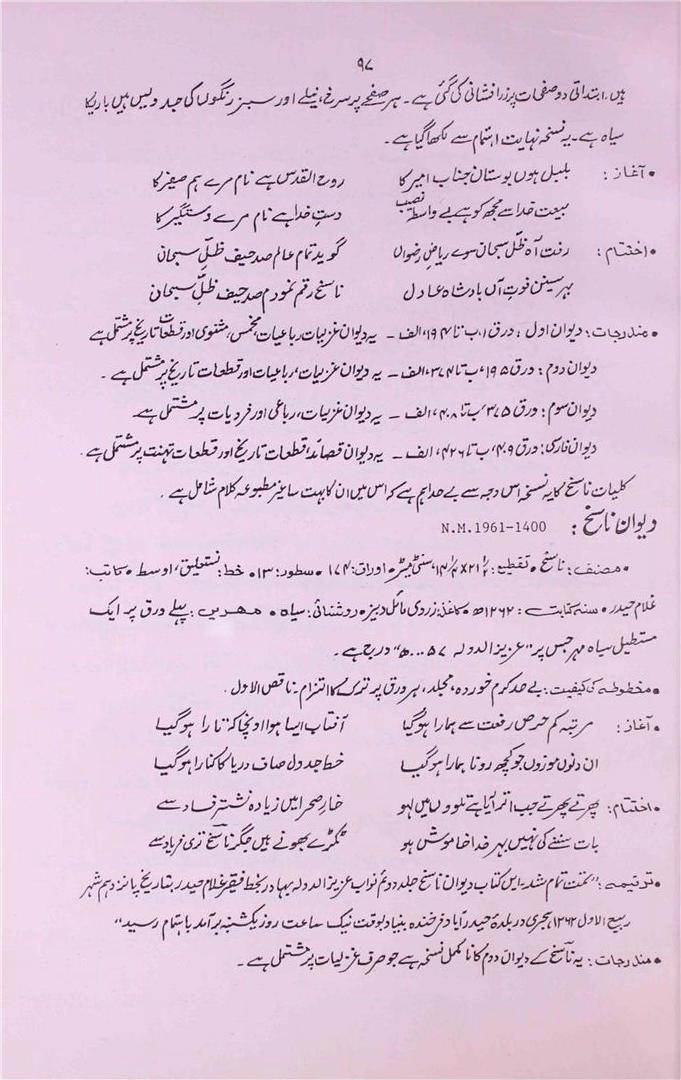 ۹۷
ہیں۔ ابتدائی دو صفحات پر زر افشانی کی گئی ہے۔ ہر صفحے پر سرخ، نیلے اور سبز رنگوں کی جدولیں ہیں باریک
سیاہ ہے۔ یہ نسخہ نہایت اہتمام سے لکھا گیا ہے۔
• آغاز: بلبل ہوں بوستان جناب امیر کا روح القدس ہے نام مرے ہم صفیر کا
بیعت خدا سے مجھ کو ہے بے واسطہ نصیب دست خدا ہے نام مرے دستگیر کا
• اختتام: رفت آہ ظل سبحان سوے ریاض رضواں گوید تمام عالم صد حیف ظلِّ سبحان
بہر سنین فوت آں بادشاہ عادل ناسخ رقم نمودم صد حیف ظلِّ سبحان
• مندرجات: دیوان اول: ورق ۱، ب تا ۱۹۴، الف ۔ یہ دیوان غزلیات، رباعیات، مخمس، مثنوی اور قطعات تاریخ پر مشتمل ہے
دیوان دوم: ورق ۱۹۵، ب تا ۳۷۴، الف ۔ یہ دیوان غزلیات، رباعیات اور قطعات تاریخ پر مشتمل ہے۔
دیوان سوم: ورق ۳۷۵، ب تا ۴۰۸، الف ۔ یہ دیوان غزلیات، رباعی اور فردیات پر مشتمل ہے۔
دیوان فارسی: ورق ۴۰۹، ب تا ۴۲۶، الف ۔ یہ دیوان قصائد، قطعات تاریخ اور قطعات تہنت پر مشتمل ہے۔
کلیات ناسخ کا یہ نسخہ اس وجہ سے بے حد اہم ہے کہ اس میں ان کا بہت سا غیر مطبوعہ کلام شامل ہے۔
دیوان ناسخ: N.M.1961-1400
• مصنف: ناسخ • تقطیع: ۲۱ ۱/۲ × ۱۴ ۱/۲، سنٹی میٹر • اوراق: ۱۷۴ • سطور: ۱۳ • خط: نستعلیق، اوسط • کاتب:
غلام حیدر • سنہ کتابت: ۱۲۶۲ھ • کاغذ: زردی مائل دبیز • روشنائی: سیاہ • مہریں: پہلے ورق پر ایک
مستطیل سیاہ مہر جس پر "عزیز الدولہ ۵۷۔۔۔ھ" درج ہے۔
• مخطوطہ کی کیفیت: بے حد کرم خوردہ، مجلد، ہر ورق پر ترک کا التزام۔ ناقص الاول۔
• آغاز: مرتبہ کم حرص رفعت سے ہمارا ہو گیا آفتاب ایسا ہوا اونچا کہ تارا ہو گیا
ان دنوں موزوں جو کچھ رونا ہمارا ہو گیا خط جدول صاف دریا کا کنارا ہو گیا
• اختتام: پھرتے پھرتے جب اتر آیا ہے تلووں میں لہو خار صحرا ہیں زیادہ نشتر فساد سے
بات سننے کی نہیں بہر خدا خاموش ہو ٹکڑے ہوتے ہیں جگر ناسخ تری فریاد سے
• ترقیمہ: "تمت تمام شد۔ ایں کتاب دیوان ناسخ جلد دوئم نواب عزیز الدولہ بہادر بخط فقیر غلام حیدر بتاریخ پانزدہم شہر
ربیع الاول ۱۲۶۲ ہجری در بلدۂ حیدرآباد فرخندہ بنیاد بوقت نیک ساعت روز یکشنبہ برآمد باہتمام رسید"
• مندرجات: یہ ناسخ کے دیوان دوم کا نا مکمل نسخہ ہے جو صرف غزلیات پر مشتمل ہے۔